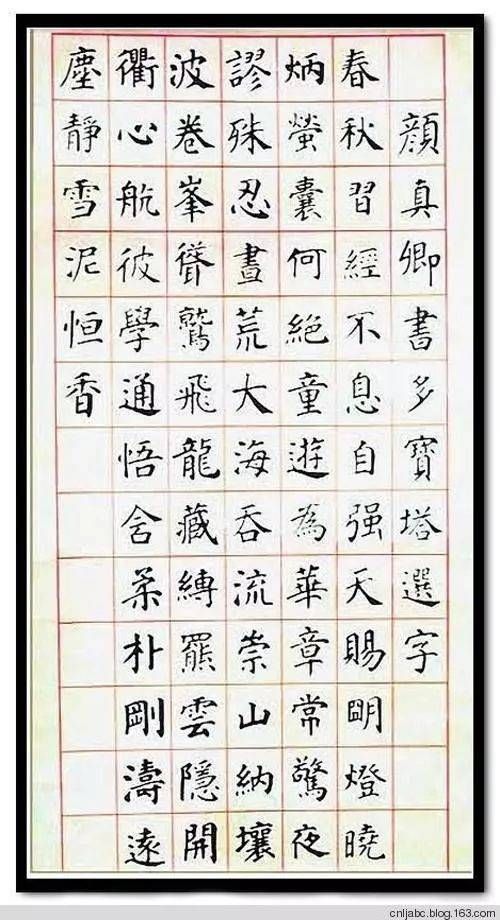 顏真卿書多寶塔選字
春秋習經不息自强天賜明燈曉
炳螢囊何絕童遊為華章常驚夜
謬殊忍晝荒大海吞流崇山納壤
波卷峯聳鷲飛龍藏縛羆雲隱開
衢心航彼學通悟舍柔朴剛濤遠
塵靜雪泥恒香
cnljabc.blog.163.com